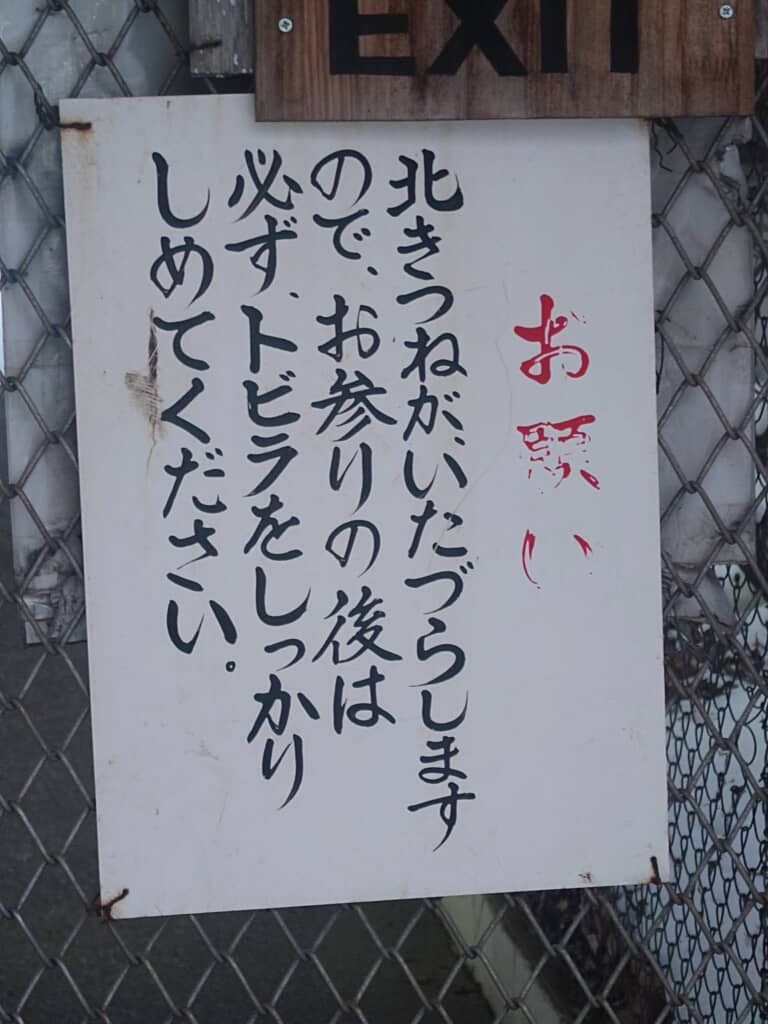 EXIT
お願い
北きつねが、いたづらします
ので、お参りの後は
必ず、トビラをしっかり
しめてください。